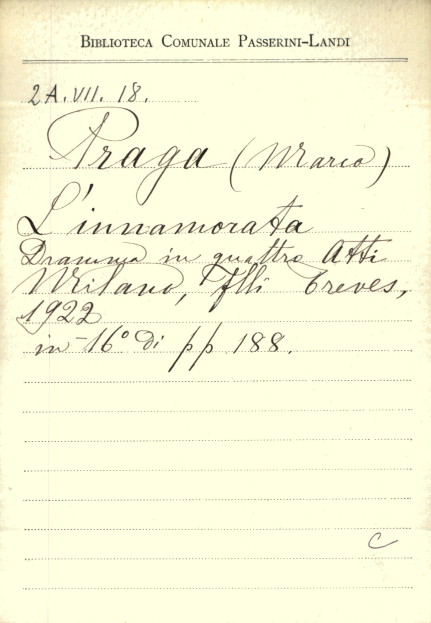 BIBLIOTECA COMUNALE PASSERINI-LANDI
2A.VII.18.
Praga (Marco)
L'innamorata
Dramma in quattro Atti
Milano, Flli Treves,
1922
in-16° di pp 188.
C